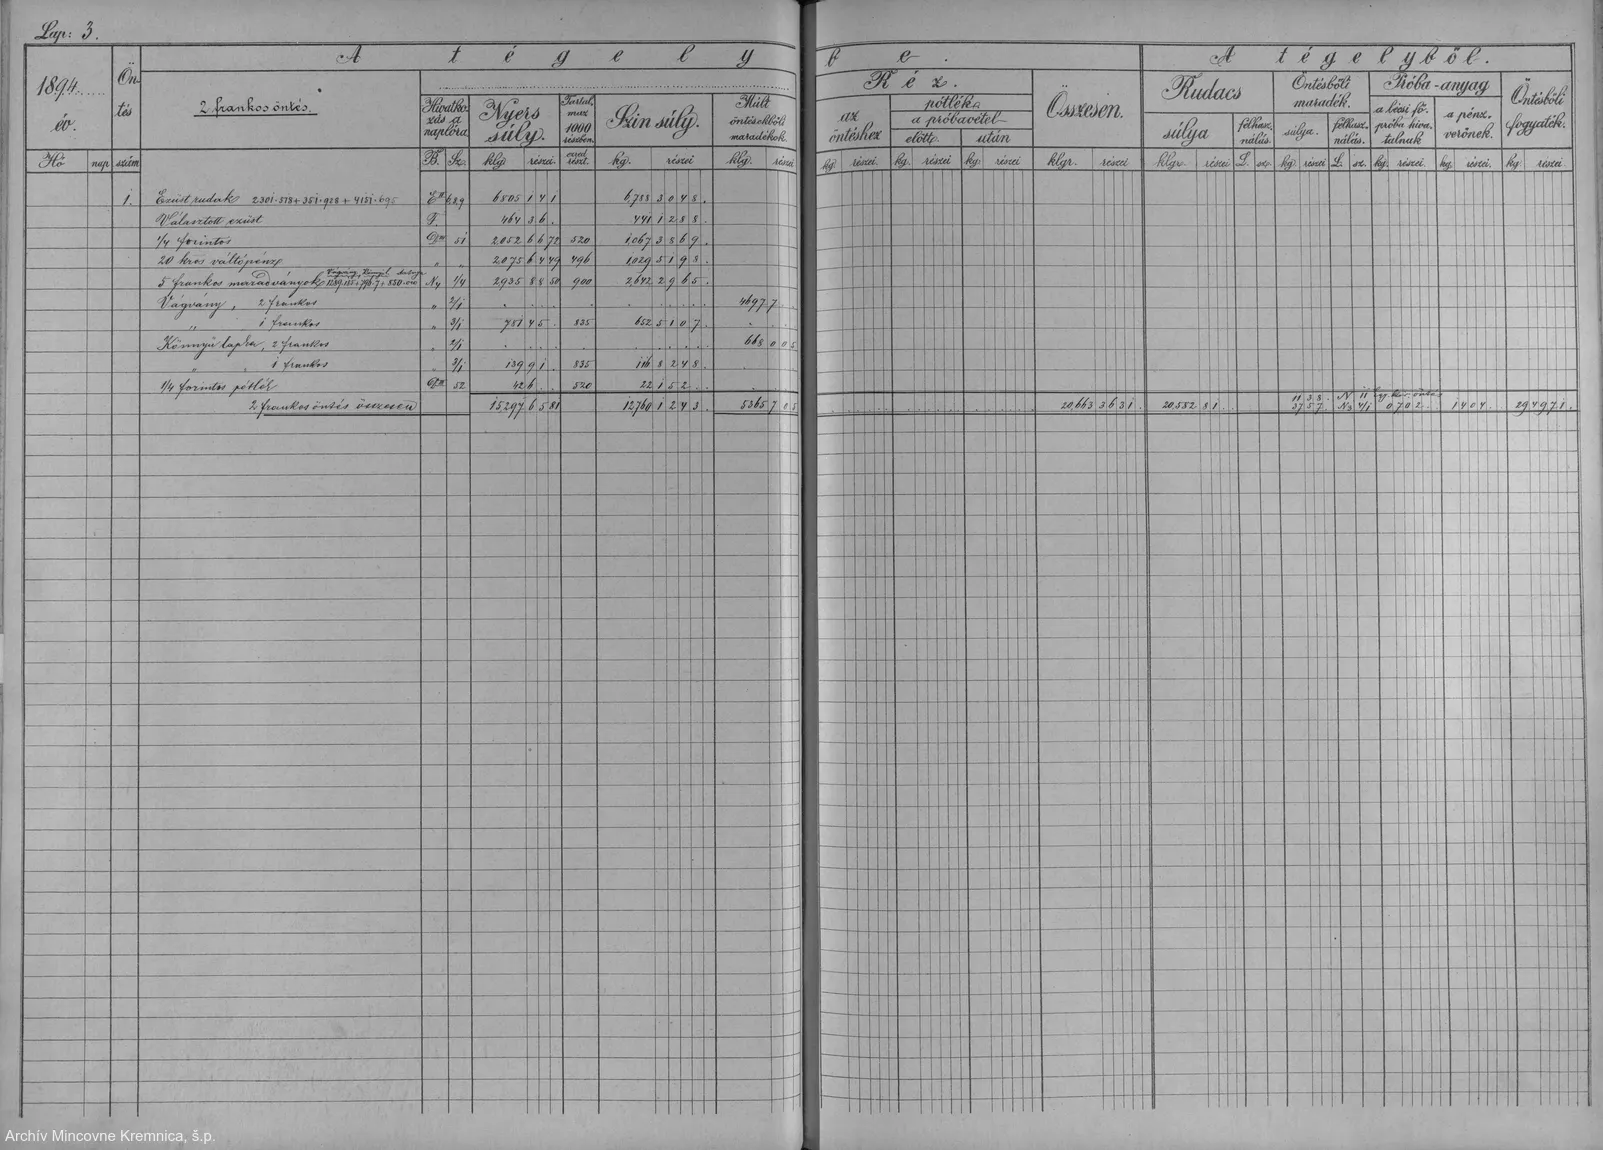 Lap: 3.
A tégelybe.
A tégelyből.
1894. év.
Öntés
2 frankos öntés.
Hivatkozás a naplóra.
Nyers súly.
Tartalmaz 1000 részben.
Szin súly.
Múlt öntésekbőli maradékok.
Réz.
az öntéshez
pótlék
a próbavétel
előtt
után
Összesen.
Rudacs
súlya
felhasználás.
Öntésbőli maradék.
súlya.
felhasználás.
Próba-anyag
a bécsi fő próba hivatalnak
a pénzverőnek.
Öntésbőli fogyaték.
Hó nap szám B. Sz. klg részei ezred részt. kg. részei klg. részei kg. részei. kg. részei kg. részei klgr. részei klgr. részei L. sz. kg részei L. sz. kg. részei. kg. részei kg. részei
1. Ezüst rudak 2301·578 + 351·928 + 4151·695 6805 141 6,788 3048.
Választott ezüst F. 464 36. 441 1288.
1/4 forintos 51 2052 6672 520 1,067 3869.
20 kros váltópénz " " 2075 6449 496 1029 5198.
5 frankos maradványok N4 1/4 2935 8850 900 2,642 2965.
Vágvány, 2 frankos " 2/1 4697 7
" 1 frankos " 3/1 781 45. 835 652 5107.
Könnyű lapka, 2 frankos " 2/1 668 005
" " 1 frankos 3/1 139 91. 835 116 8248.
1/4 forintos pótlék 52 42 6 520 22 152.
2 frankos öntés összesen 15297 6581 12760 1243 5365 705 20,663 3631 20,582 81 1138. 3757. N3 4/1 0702. 1404. 29 4971.
Archív Mincovne Kremnica, š.p.